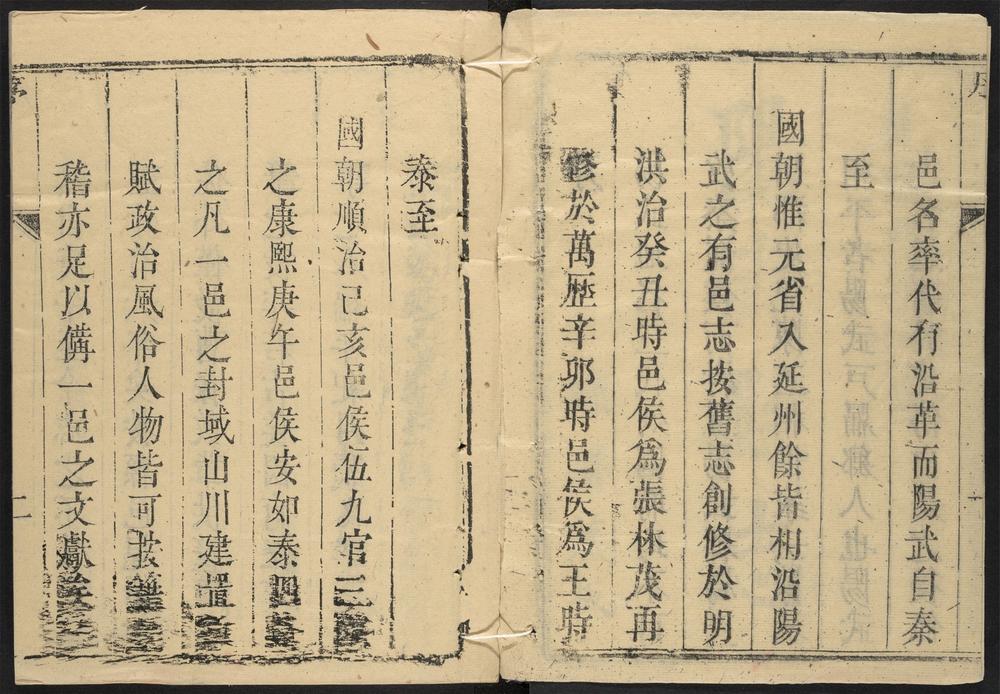 邑名率代有沿革而陽武自秦
至
國朝惟元省入延州餘皆相沿陽
武之有邑志按舊志創修於明
洪治癸丑時邑侯爲張林茂再
修於萬歷辛卯時邑侯爲王時
泰至
國朝順治己亥邑侯伍九官三
之康熙庚午邑侯安如泰四
之凡一邑之封域山川建置
賦政治風俗人物皆可按
稽亦足以備一邑之文獻
序
二